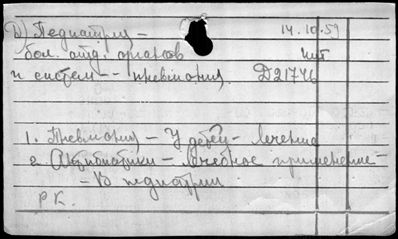 д) Педиатрия – 14.10.59
бол. отд. органов
и систем -- пневмония Д21746
1. Пневмония – У детей – Лечение
2. Антибиотики – Лечебное применение –
– В педиатрии
Р К.